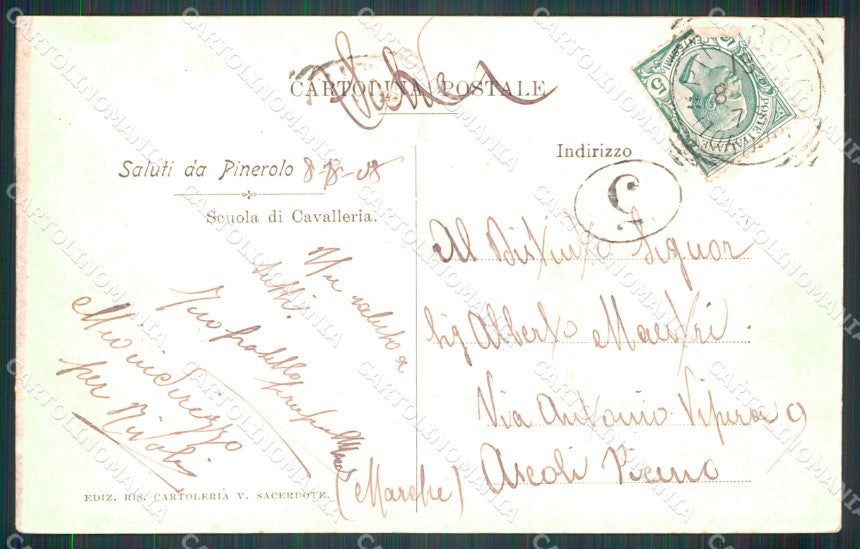 CARTOLINA POSTALE
Saluti da Pinerolo 8-8-08
Scuola di Cavalleria.
Indirizzo
Un saluto a
tutti.
Tuo fratello
Mio indirizzo
per Rivoli
Al Distinto Signor
Sig Alberto Maestri.
Via Antonio Vipera 9
Ascoli Piceno
(Marche)
EDIZ. RIS. CARTOLERIA V. SACERDOTE.
POSTE ITALIANE
CENTESIMI
5
CARTOLINOMANIA